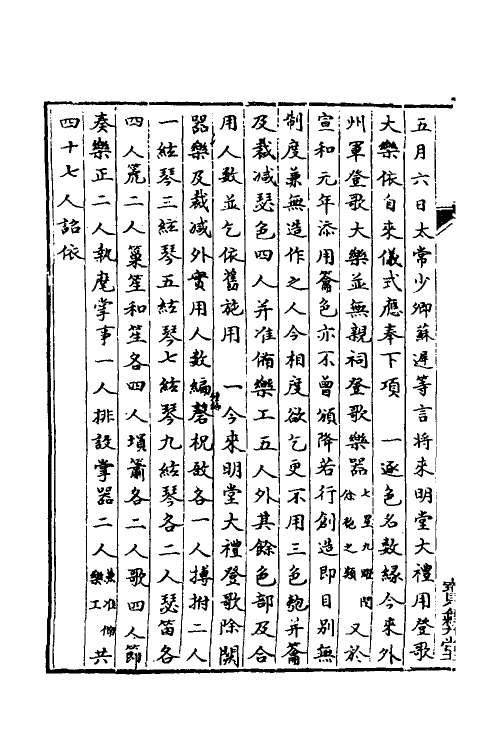 五月六日太常少卿蘇遲等言将來明堂大禮用登歌
大樂依自來儀式應奉下項　一逐色名數緣今來外
州軍登歌大樂並無親祠登歌樂器七星九曜閏餘匏之類又於
宣和元年添用籥色亦不曾頒降若行創造即目别無
制度兼無造作之人今相度欲乞更不用三色匏并籥
及裁減瑟色四人并准備樂工五人外其餘色部及合
用人數並乞依舊施用　一今來明堂大禮登歌除闕
器樂及裁減外實用人數編磬柷敔各一人搏拊二人
一絃琴三絃琴五絃琴七絃琴九絃琴各二人瑟笛各
四人箎二人篥笙和笙各四人塤簫各二人歌四人節
奏樂正二人執麾掌事一人排設掌器二人兼准備樂工共
四十七人詔依